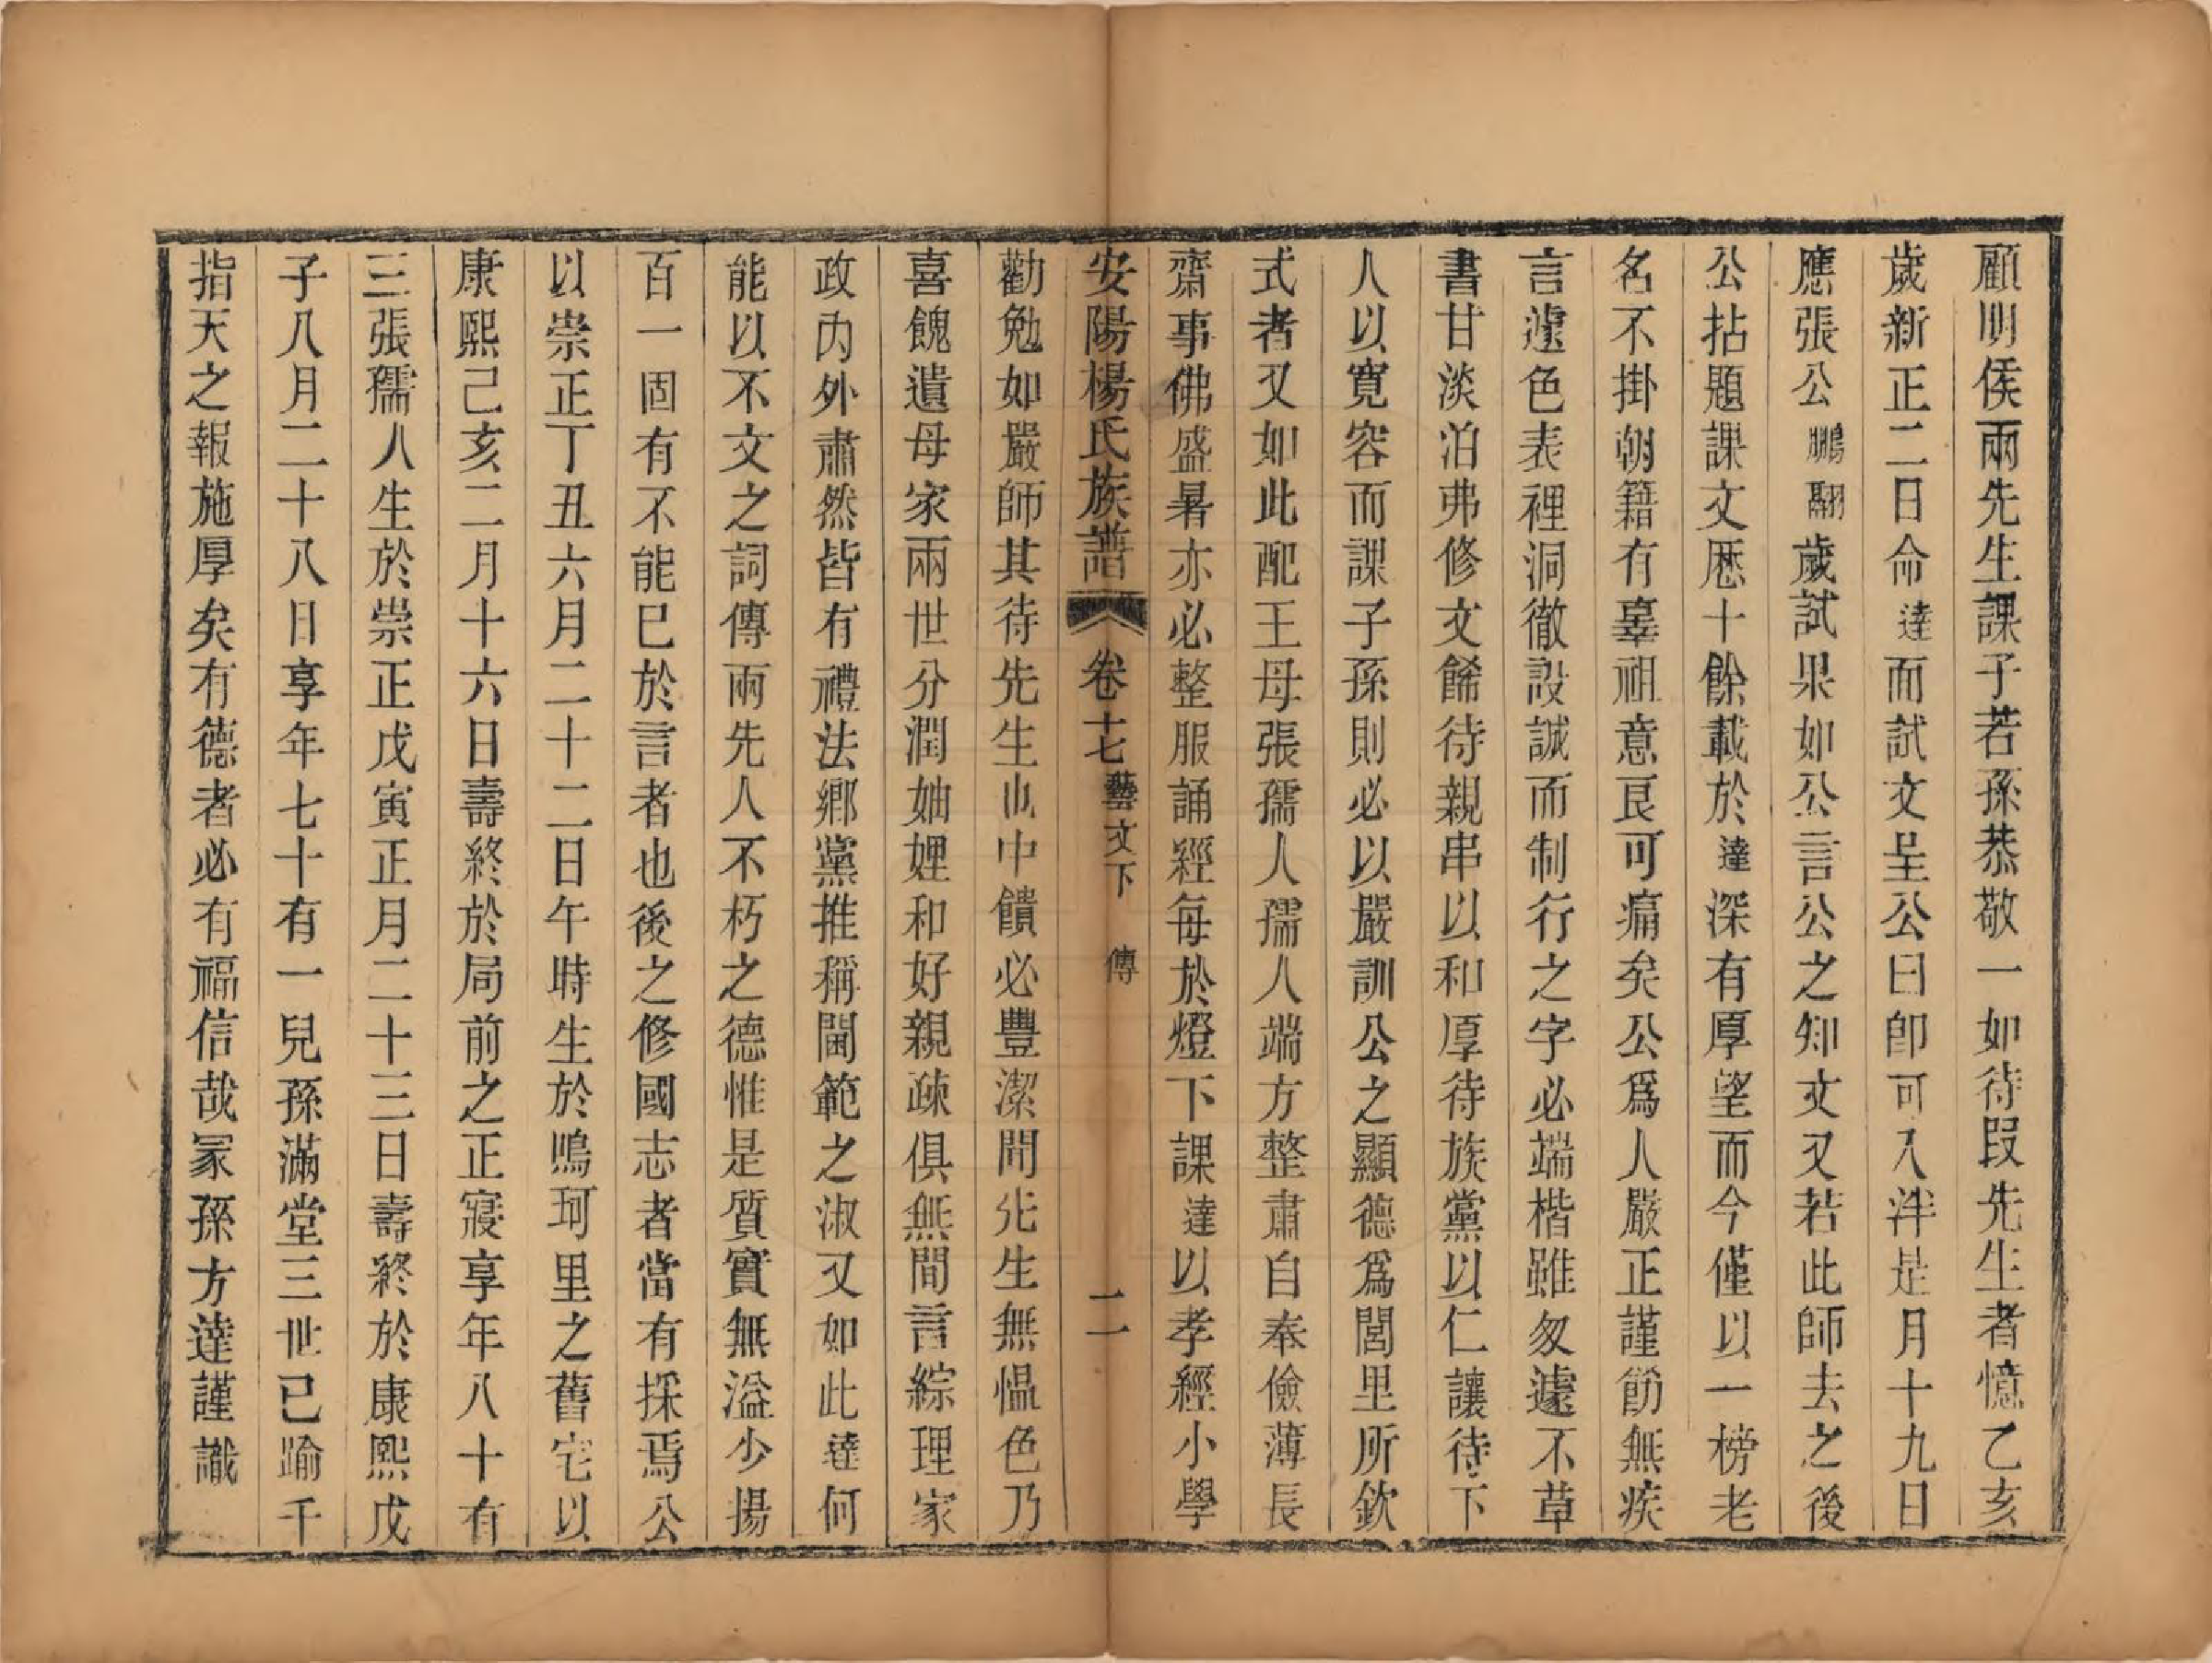 顧明俟兩先生課子若孫恭敬一如待段先生者憶乙亥
歲新正二日命達而試文呈公曰卽可入泮是月十九日
應張公鵬翮歲試果如公言公之知文又若此師去之後
公拈題課文歷十餘載於達深有厚望而今僅以一榜老
名不掛朝籍有辜祖意良可痛矣公爲人嚴正謹飭無疾
言遽色表裡洞徹設誠而制行之字必端楷雖匆遽不草
書甘淡泊弗修文餙待親串以和厚待族黨以仁讓待下
人以寬容而課子孫則必以嚴訓公之顯德爲閭里所欽
式者又如此配王母張孺人孺人端方整肅自奉儉薄長
齋事佛盛暑亦必整服誦經每於燈下課達以孝經小學
安陽楊氏族譜 卷十七 藝文下 傳 二
勸勉如嚴師其待先生也中饋必豐潔間先生無慍色乃
喜餽遺母家兩世分潤妯娌和好親疎俱無間言綜理家
政内外肅然皆有禮法鄉黨推稱閫範之淑又如此達何
能以不文之詞傳兩先人不朽之德惟是質實無溢少揚
百一固有不能已於言者也後之修國志者當有採焉公
以崇正丁丑六月二十二日午時生於鳴珂里之舊宅以
康熙己亥二月十六日壽終於局前之正寢享年八十有
三張孺人生於崇正戊寅正月二十三日壽終於康熙戊
子八月二十八日享年七十有一兒孫滿堂三世已踰千
指天之報施厚矣有德者必有福信哉冢孫方達謹識